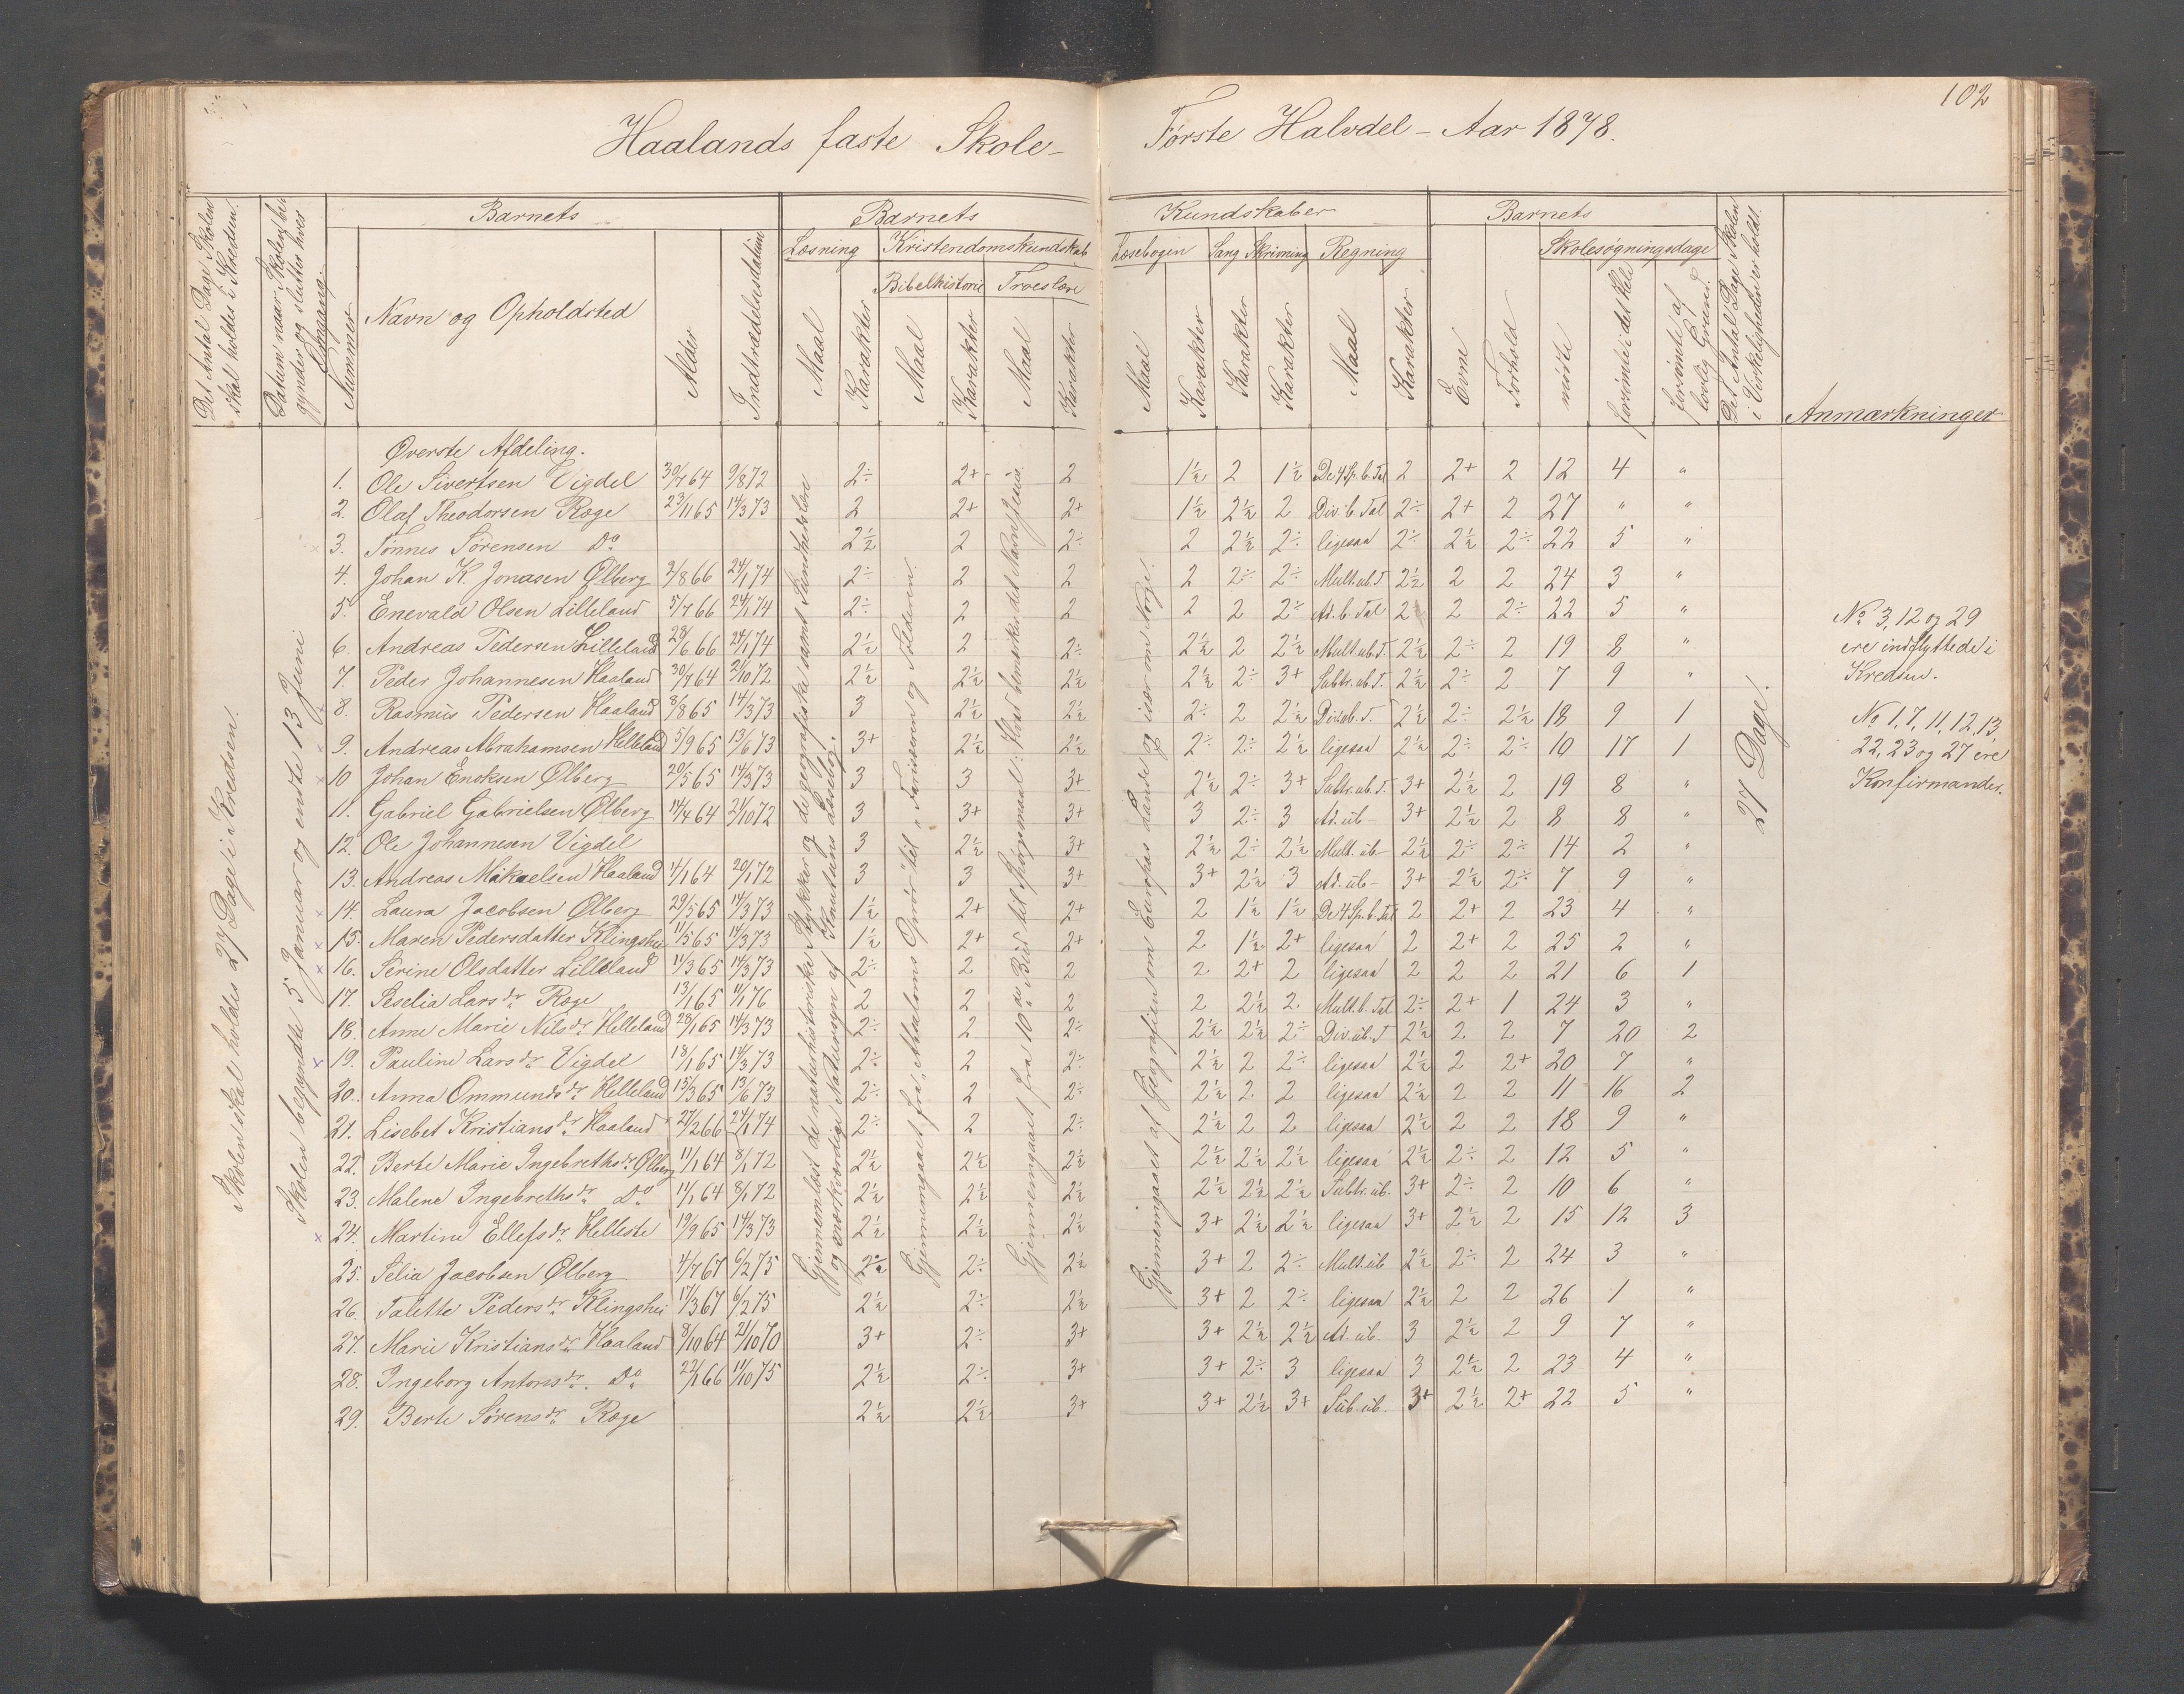 102
Haalands faste Skole- Første Halvdel - Aar 1878.
Det Antal Dage Skolen skal holdes i Kredsen.
Datum naar Skolen begynder og slutter hver Omgang.
Nummer
Barnets
Navn og Opholdsted
Alder
Indtrædelsesdatum
Barnets Kundskaber
Læsning
Maal Karakter
Kristendomskundskab
Bibelhistorie Troeslære
Maal Karakter Maal Karakter
Læsebogen Sang Skrivning Regning
Maal Karakter Karakter Karakter Maal Karakter
Barnets
Evne Forhold
Skolesøgningsdage
mødte
forsømte i det Hele
forsømte af lovlig Grund.
Det Antal Dage Skolen i Virkeligheden er holdt.
Anmærkninger
Skolen skal holdes 27 Dage i Kredsen.
Skolen begyndte 5 Januar og endte 13 Juni
Gjennemlæst de naturhistoriske Stykker og de geografiske samt Sundhedslære
og mærkværdige Natursyn af Knutsens Læsebog.
Gjennemgaaet fra "Absaloms Oprør" til "Farisæeren og Tolderen.
Gjennemgaaet fra 10de Bud til Spørgsmaal: Hvad bemærker det Navn Jesus.
Gjennemgaaet af Geografien om Europas Lande og især om Norge.
27 Dage.
Øverste Afdeling.
1. Ole Sivertsen Vigdel 30/7 64 9/8 72 2÷ 2+ 2 1½ 2 1½ De 4 Sp. b. Tal 2 2+ 2 12 4 "
2. Olaf Theodorsen Røge 23/11 65 14/3 73 2 2+ 2+ 1½ 2½ 2 Div. b. Tal 2÷ 2+ 2 27 " "
3. Tønnes Sørensen Do 2½ 2 2÷ 2 2½ 2÷ ligesaa 2÷ 2½ 2÷ 22 5 "
4. Johan K. Jonasen Ølberg 2/8 66 24/1 74 2÷ 2 2 2 2÷ 2÷ Mult. ub. T 2½ 2 2 24 3 "
5. Enevald Olsen Lilleland 5/7 66 24/1 74 2÷ 2 2 2 2 2÷ Ad. b. Tal 2 2 2÷ 22 5 "
6. Andreas Pedersen Lilleland 28/6 66 24/1 74 2½ 2 2÷ 2½ 2 2½ Mult. ub. T. 2½ 2÷ 2 19 8 "
7. Peder Johannesen Haaland 30/7 64 2/10 72 2½ 2½ 2½ 2½ 2÷ 3+ Subtr. ub. T. 2½ 2÷ 2 7 9 "
8. Rasmus Pedersen Haaland 8/8 65 14/3 73 3 2½ 2½ 2÷ 2 2½ Div. ub. T. 2½ 2÷ 2½ 18 9 1
9. Andreas Abrahamsen Helleland 5/9 65 13/6 73 3+ 2½ 2½ 2÷ 2÷ 2½ ligesaa 2½ 2÷ 2÷ 10 17 1
10 Johan Enoksen Ølberg 20/5 65 14/3 73 3 3 3+ 2½ 2÷ 3+ Subtr. ub. T. 3+ 2½ 2 19 8 "
11. Gabriel Gabrielsen Ølberg 14/4 64 2/10 72 3 3+ 3+ 3 2÷ 3 Ad. ub - 3+ 2½ 2 8 8 "
12. Ole Johannesen Vigdel 3 2½ 3+ 2½ 2÷ 2½ Mult. ub - 2½ 2÷ 2÷ 14 2 "
13. Andreas Mikaelsen Haaland 4/1 64 20/1 72 3 3 3+ 3+ 2½ 3 Ad. ub - 3+ 2½ 2÷ 7 9 "
14. Laura Jacobsen Ølberg 29/5 65 14/3 73 1½ 2+ 2+ 2 1½ 1½ De 4 Sp. b. Tal 2 2+ 2 23 4 "
15. Maren Pedersdatter Klingshei 11/5 65 14/3 73 1½ 2+ 2+ 2 1½ 2+ ligesaa 2 2+ 2 25 2 "
16. Serine Olsdatter Lilleland 11/3 65 14/3 73 2÷ 2 2 2 2+ 2 ligesaa 2 2 2 21 6 1
17. Seselia Larsdr Røge 13/1 65 11/1 76 2 2 2 2 2½ 2. Mult. b. Tal 2÷ 2+ 1 24 3 "
18. Anne Marie Nilsdr Helleland 28/1 65 14/3 73 2÷ 2 2÷ 2½ 2½ 2÷ Div. ub. T 2½ 2 2 7 20 2
19. Pauline Larsdr Vigdel 18/1 65 14/3 73 2÷ 2 2÷ 2½ 2 2÷ ligesaa 2½ 2 2+ 20 7 "
20. Anna Ommundsdr Helleland 15/3 65 13/6 73 2÷ 2 2÷ 2½ 2 2 ligesaa 2½ 2 2 11 16 2
21. Lisebet Kristiansdr Haaland 27/2 66 24/1 74 2÷ 2 2÷ 2½ 2 2 ligesaa 2½ 2 2 18 9 "
22. Berte Marie Ingebrethsdr Ølberg 11/1 64 8/1 72 2½ 2½ 2½ 2½ 2½ 2½ ligesaa 2½ 2÷ 2 12 5 "
23. Malene Ingebrethsdr Do 11/1 64 8/1 72 2½ 2½ 2½ 2½ 2½ 2½ Subtr. ub. 3+ 2÷ 2 10 6 "
24. Martine Ellefsdr Helleste 19/9 65 14/3 73 2½ 2½ 2½ 3+ 2½ 2½ ligesaa 3+ 2½ 2 15 12 3
25. Selia Jacobsen Ølberg 4/7 67 6/2 75 2½ 2÷ 2½ 3+ 2 2÷ Mult. ub 2½ 2÷ 2 24 3 "
26. Talette Pedersdr Klingshei 17/3 67 6/2 75 2½ 2÷ 2½ 3+ 2 2÷ ligesaa 2½ 2 2 26 1 "
27. Marie Kristiansdr Haaland 8/10 64 21/10 70 3+ 2÷ 3+ 3+ 2½ 2½ Ad. ub. 3 2½ 2 9 7 "
28. Ingeborg Antonsdr. Do 22/1 66 11/10 75 2½ 2÷ 3+ 3+ 2÷ 3 ligesaa 3 2½ 2 23 4 "
29. Berte Sørensdr Røge 2½ 2½ 3+ 3+ 2½ 3+ Sub. ub. 3+ 2½ 2+ 22 5 "
No 3, 12 og 29
ere indflyttede i
Kredsen.
No 1, 7, 11, 12, 13,
22, 23 og 27 ere
Konfirmander.